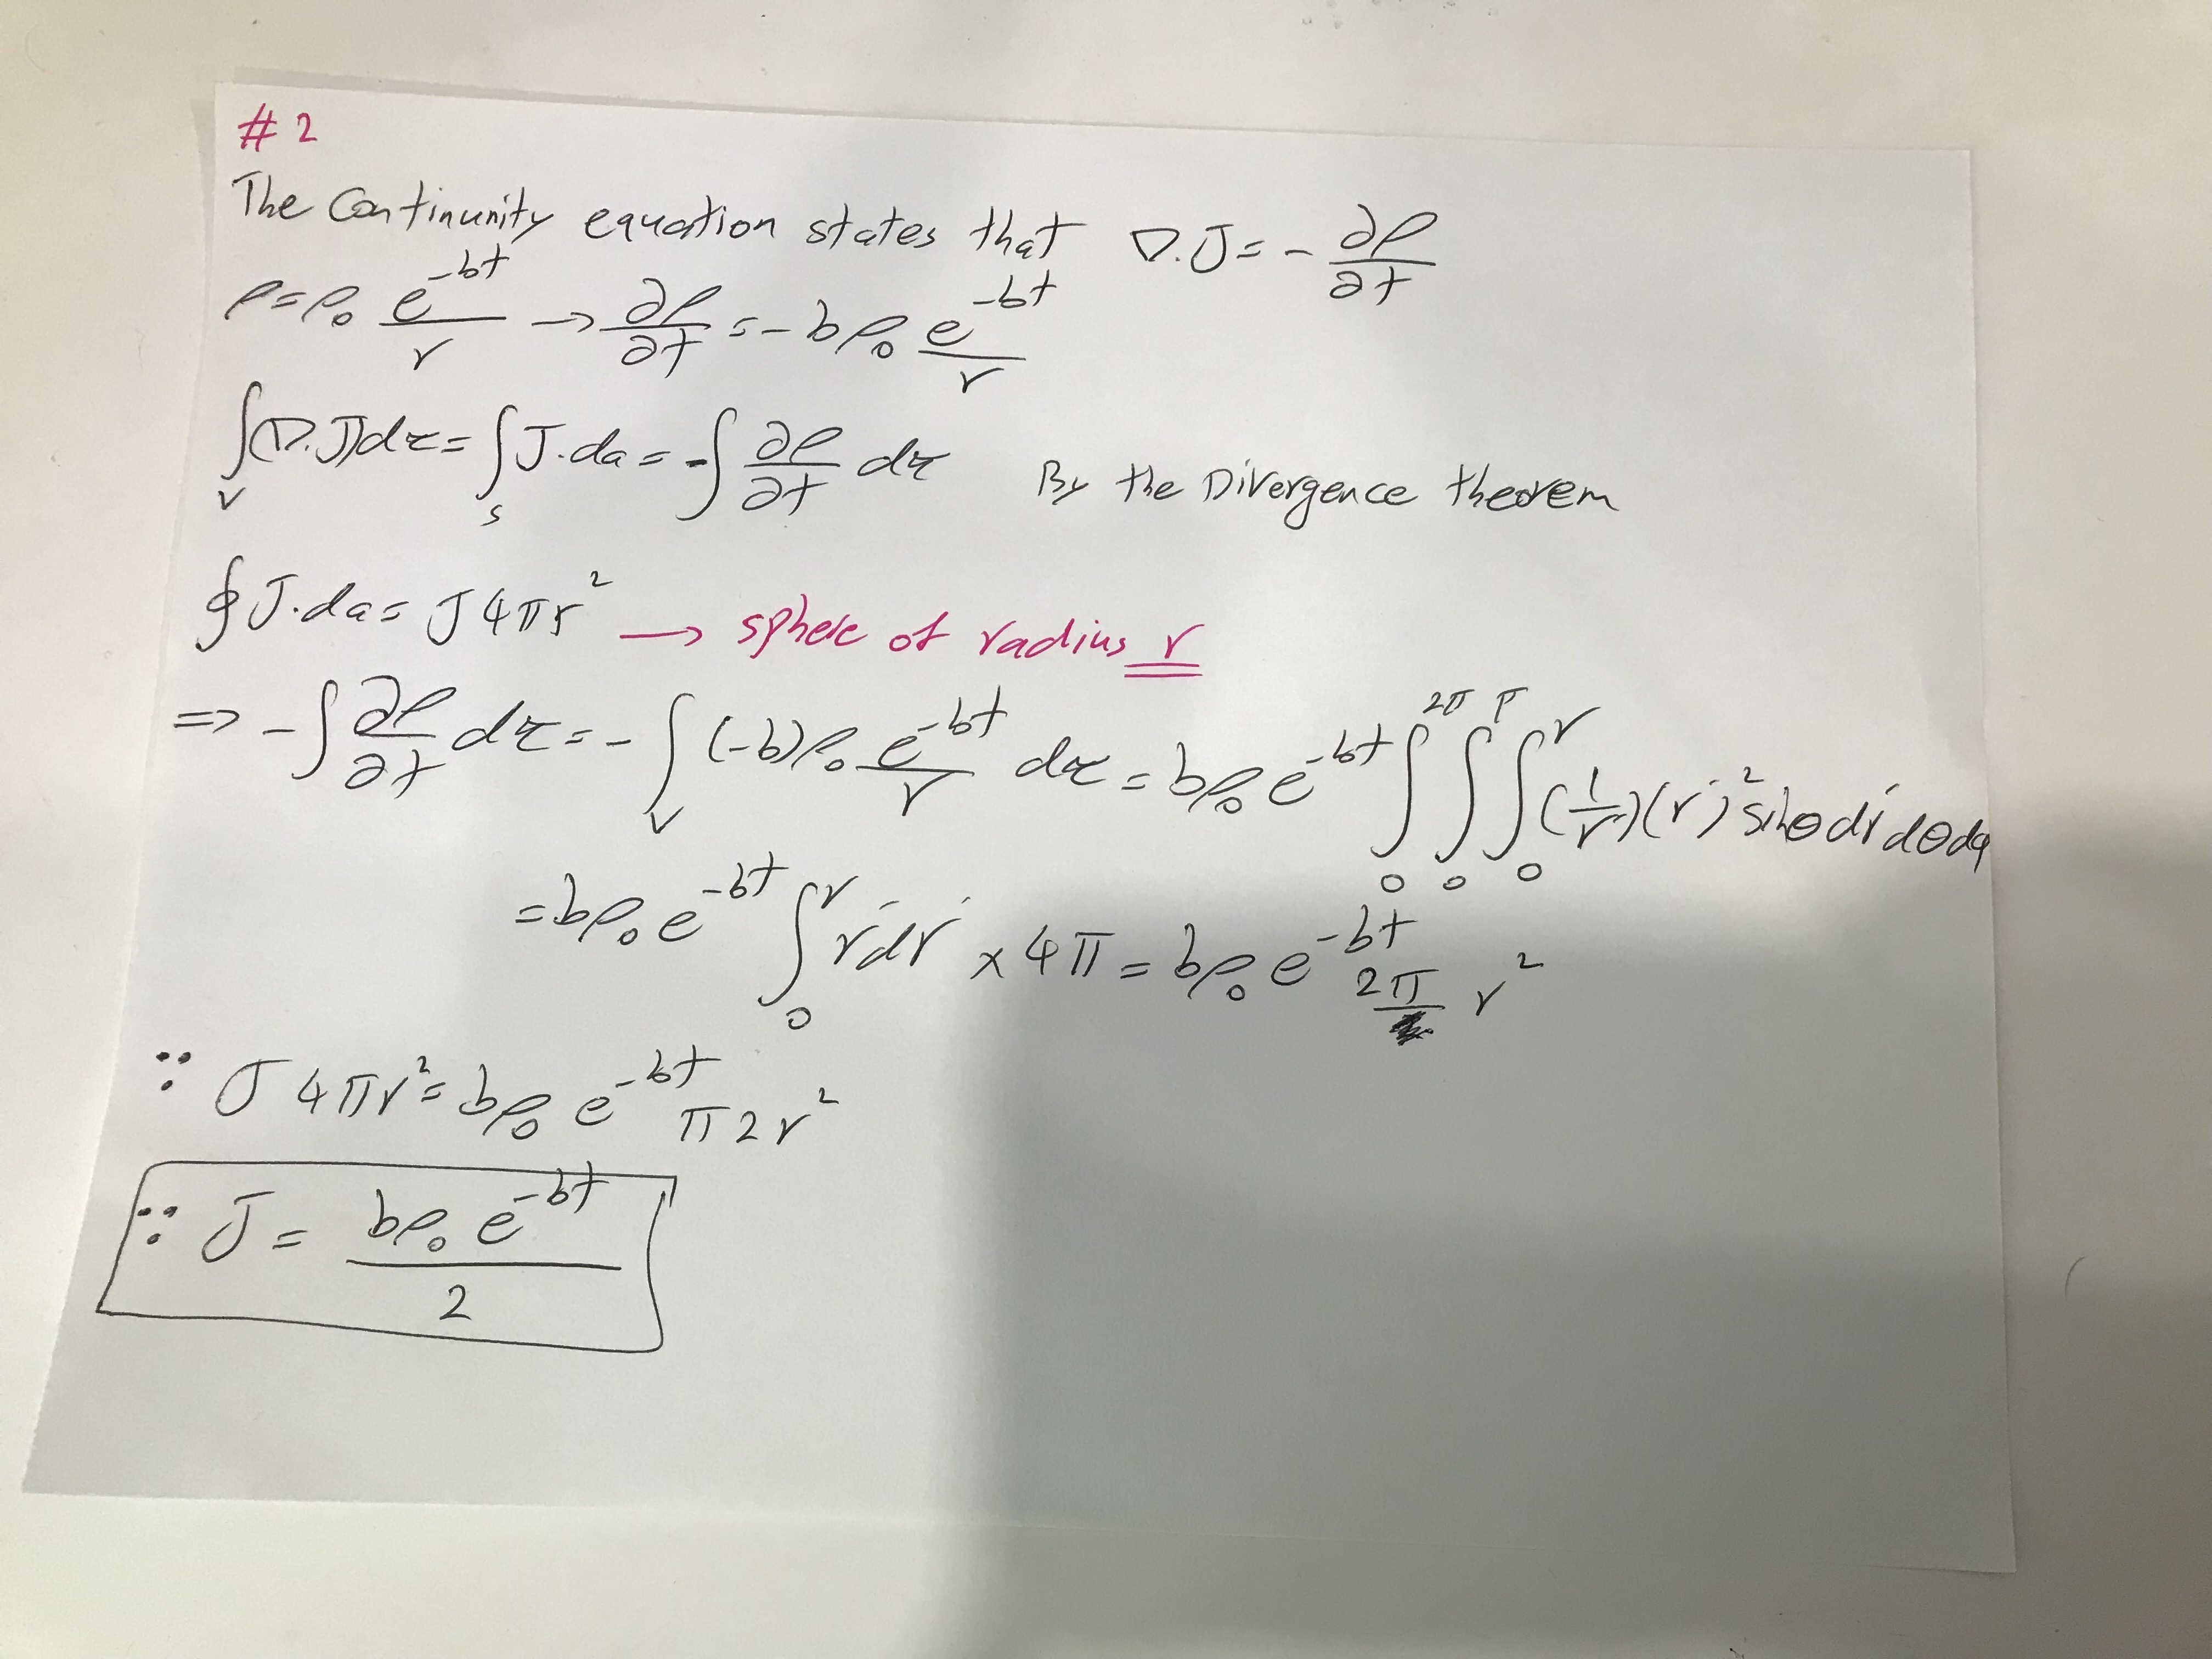 # 2
The Continunity equation states that ∇.J = - ∂ρ/∂t
ρ = ρ₀ e^-bt / r → ∂ρ/∂t = - b ρ₀ e^-bt / r
∫_V (∇.J) dτ = ∫_S J.da = -∫ ∂ρ/∂t dτ By the Divergence theorem
∮ J.da = J 4πr² → sphere of radius r
⇒ -∫ ∂ρ/∂t dτ = - ∫_V (-b) ρ₀ e^-bt / r dτ = bρ₀ e^-bt ∫_0^2π ∫_0^π ∫_0^r (1/r') (r')² sinθ dr' dθ dφ
= bρ₀ e^-bt ∫_0^r r' dr' × 4π = bρ₀ e^-bt 2π r²
∵ J 4πr² = bρ₀ e^-bt π 2 r²
∵ J = bρ₀ e^-bt / 2